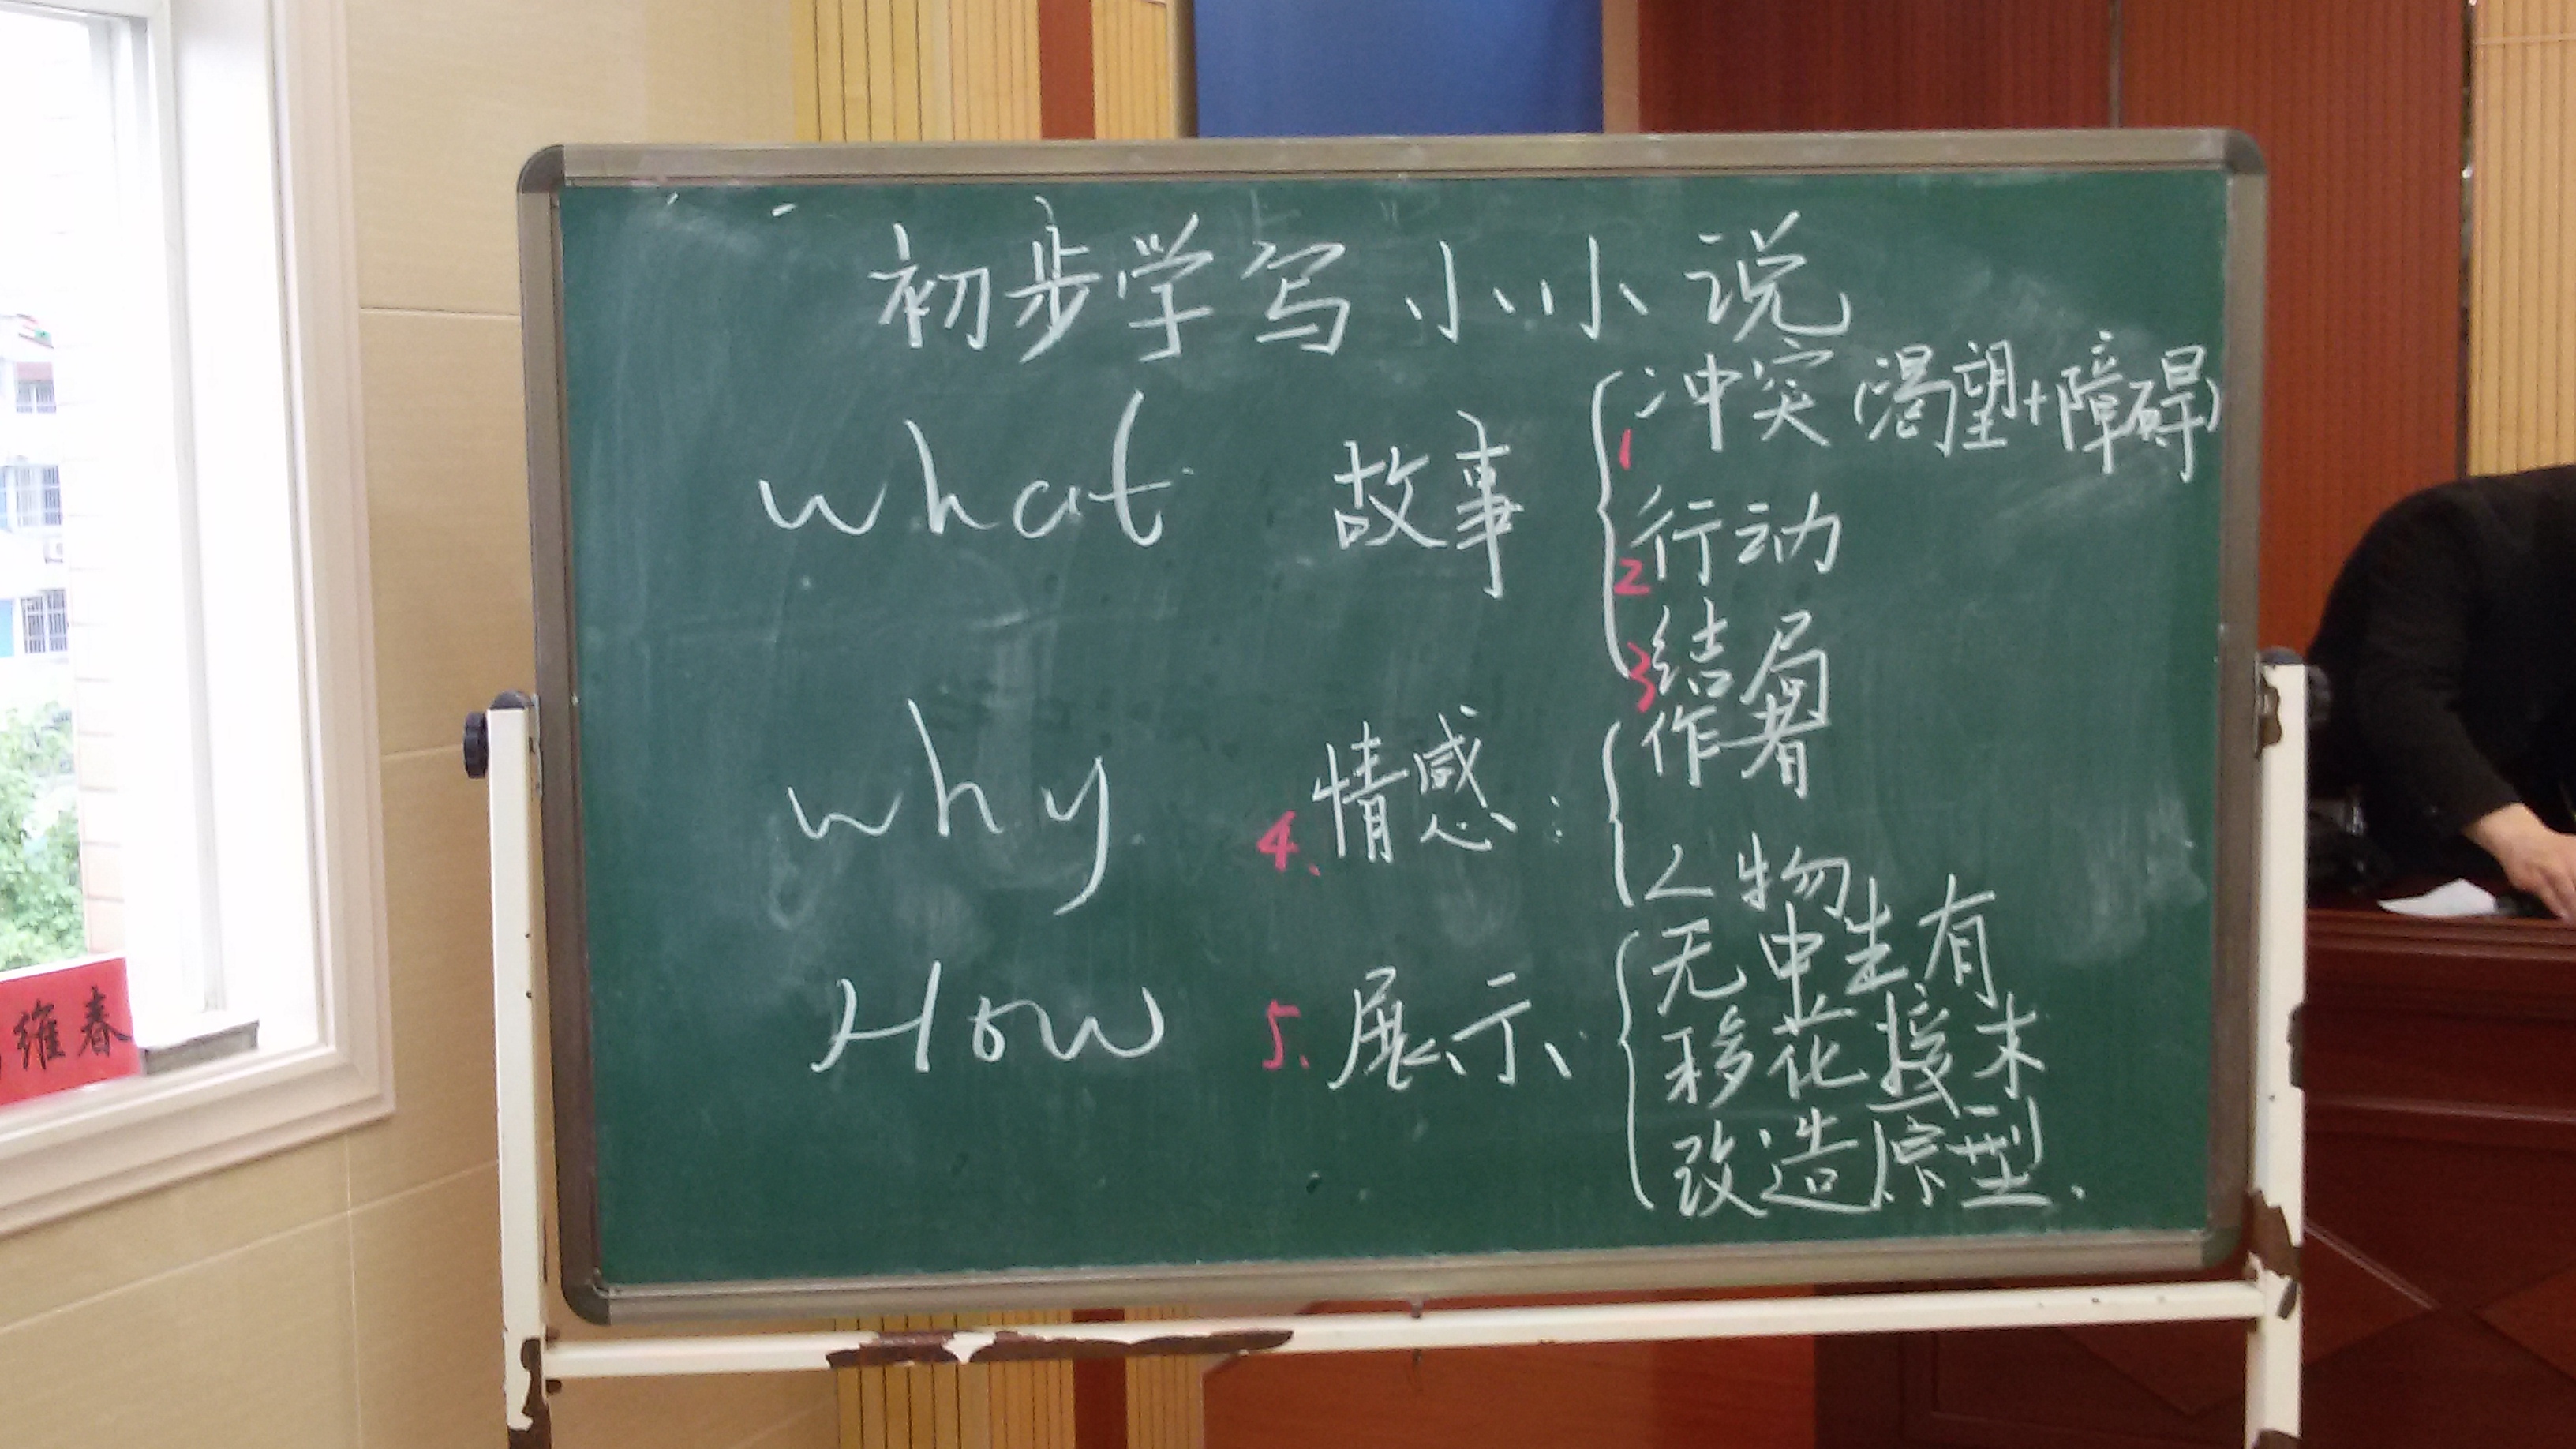 初步学写小小说
what 故事 1 冲突(渴望+障碍)
2 行动
3 结局
why 4、情感: 作者
人物
How 5、展示: 无中生有
移花接木
改造原型.
维春